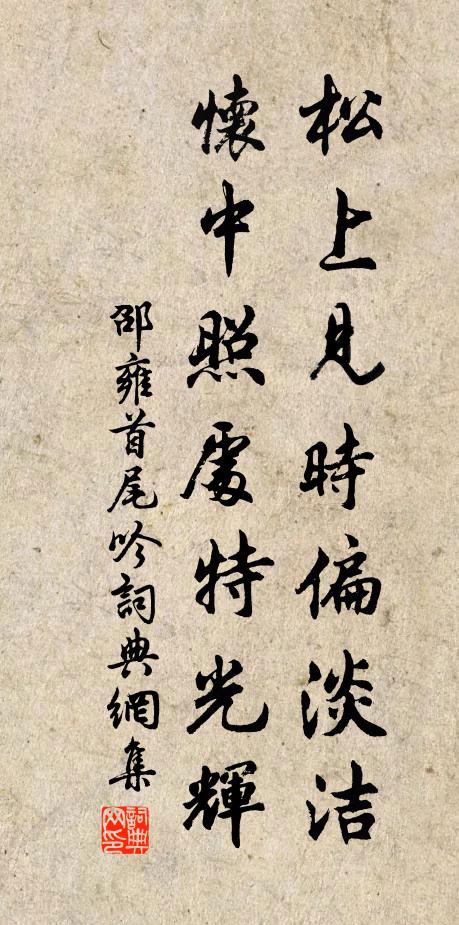 松上見時偏淡洁
懷中照處特光輝
邵雍首尾吟詞典網集
詞典网印